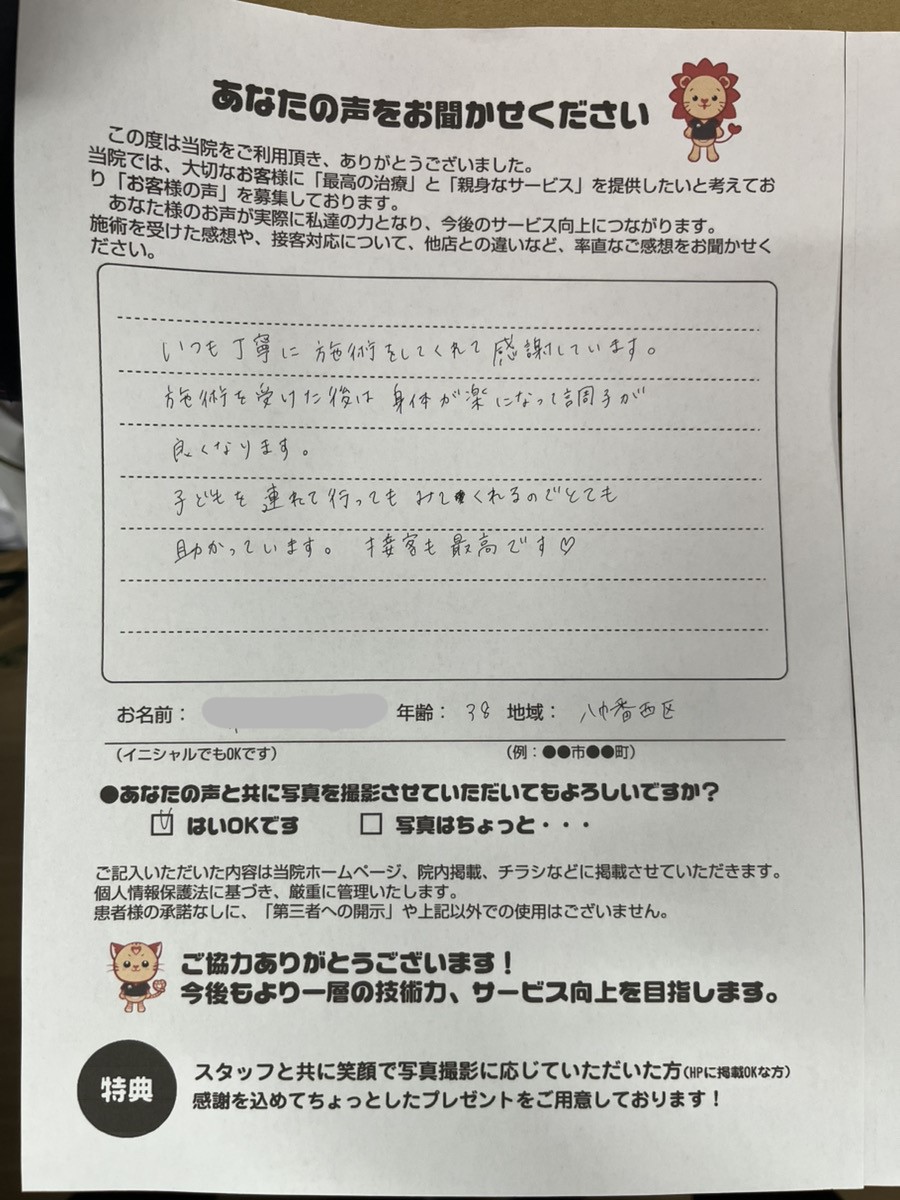 あなたの声をお聞かせください
この度は当院をご利用頂き、ありがとうございました。
当院では、大切なお客様に「最高の治療」と「親身なサービス」を提供したいと考えてお
り「お客様の声」を募集しております。
あなた様のお声が実際に私達の力となり、今後のサービス向上につながります。
施術を受けた感想や、接客対応について、他店との違いなど、率直なご感想をお聞かせく
ださい。
いつも丁寧に施術をしてくれて感謝しています。
施術を受けた後は身体が楽になって調子が
良くなります。
子どもを連れて行ってもみてくれるのでとても
助かっています。接客も最高です♡
お名前： 年齢：38 地域：八幡西区
（イニシャルでもOKです） （例：●●市●●町）
●あなたの声と共に写真を撮影させていただいてもよろしいですか？
☑ はいOKです □ 写真はちょっと・・・
ご記入いただいた内容は当院ホームページ、院内掲載、チラシなどに掲載させていただきます。
個人情報保護法に基づき、厳重に管理いたします。
患者様の承諾なしに、「第三者への開示」や上記以外での使用はございません。
ご協力ありがとうございます！
今後もより一層の技術力、サービス向上を目指します。
特典
スタッフと共に笑顔で写真撮影に応じていただいた方(HPに掲載OKな方)
感謝を込めてちょっとしたプレゼントをご用意しております！